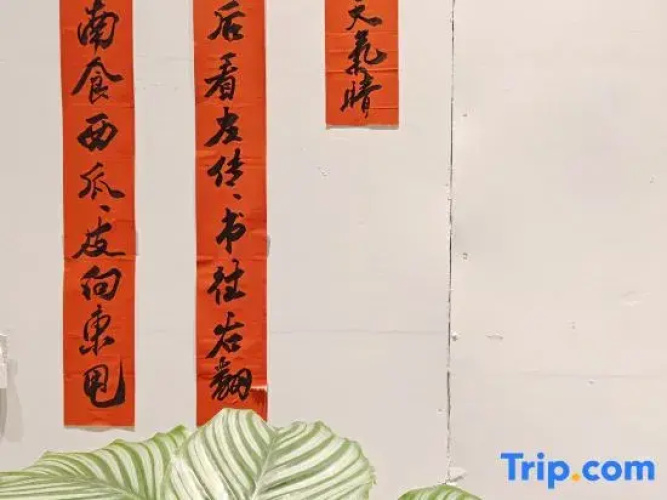 天氣晴
后看左传、书往右翻
南食西瓜、皮向東甩
Trip.com